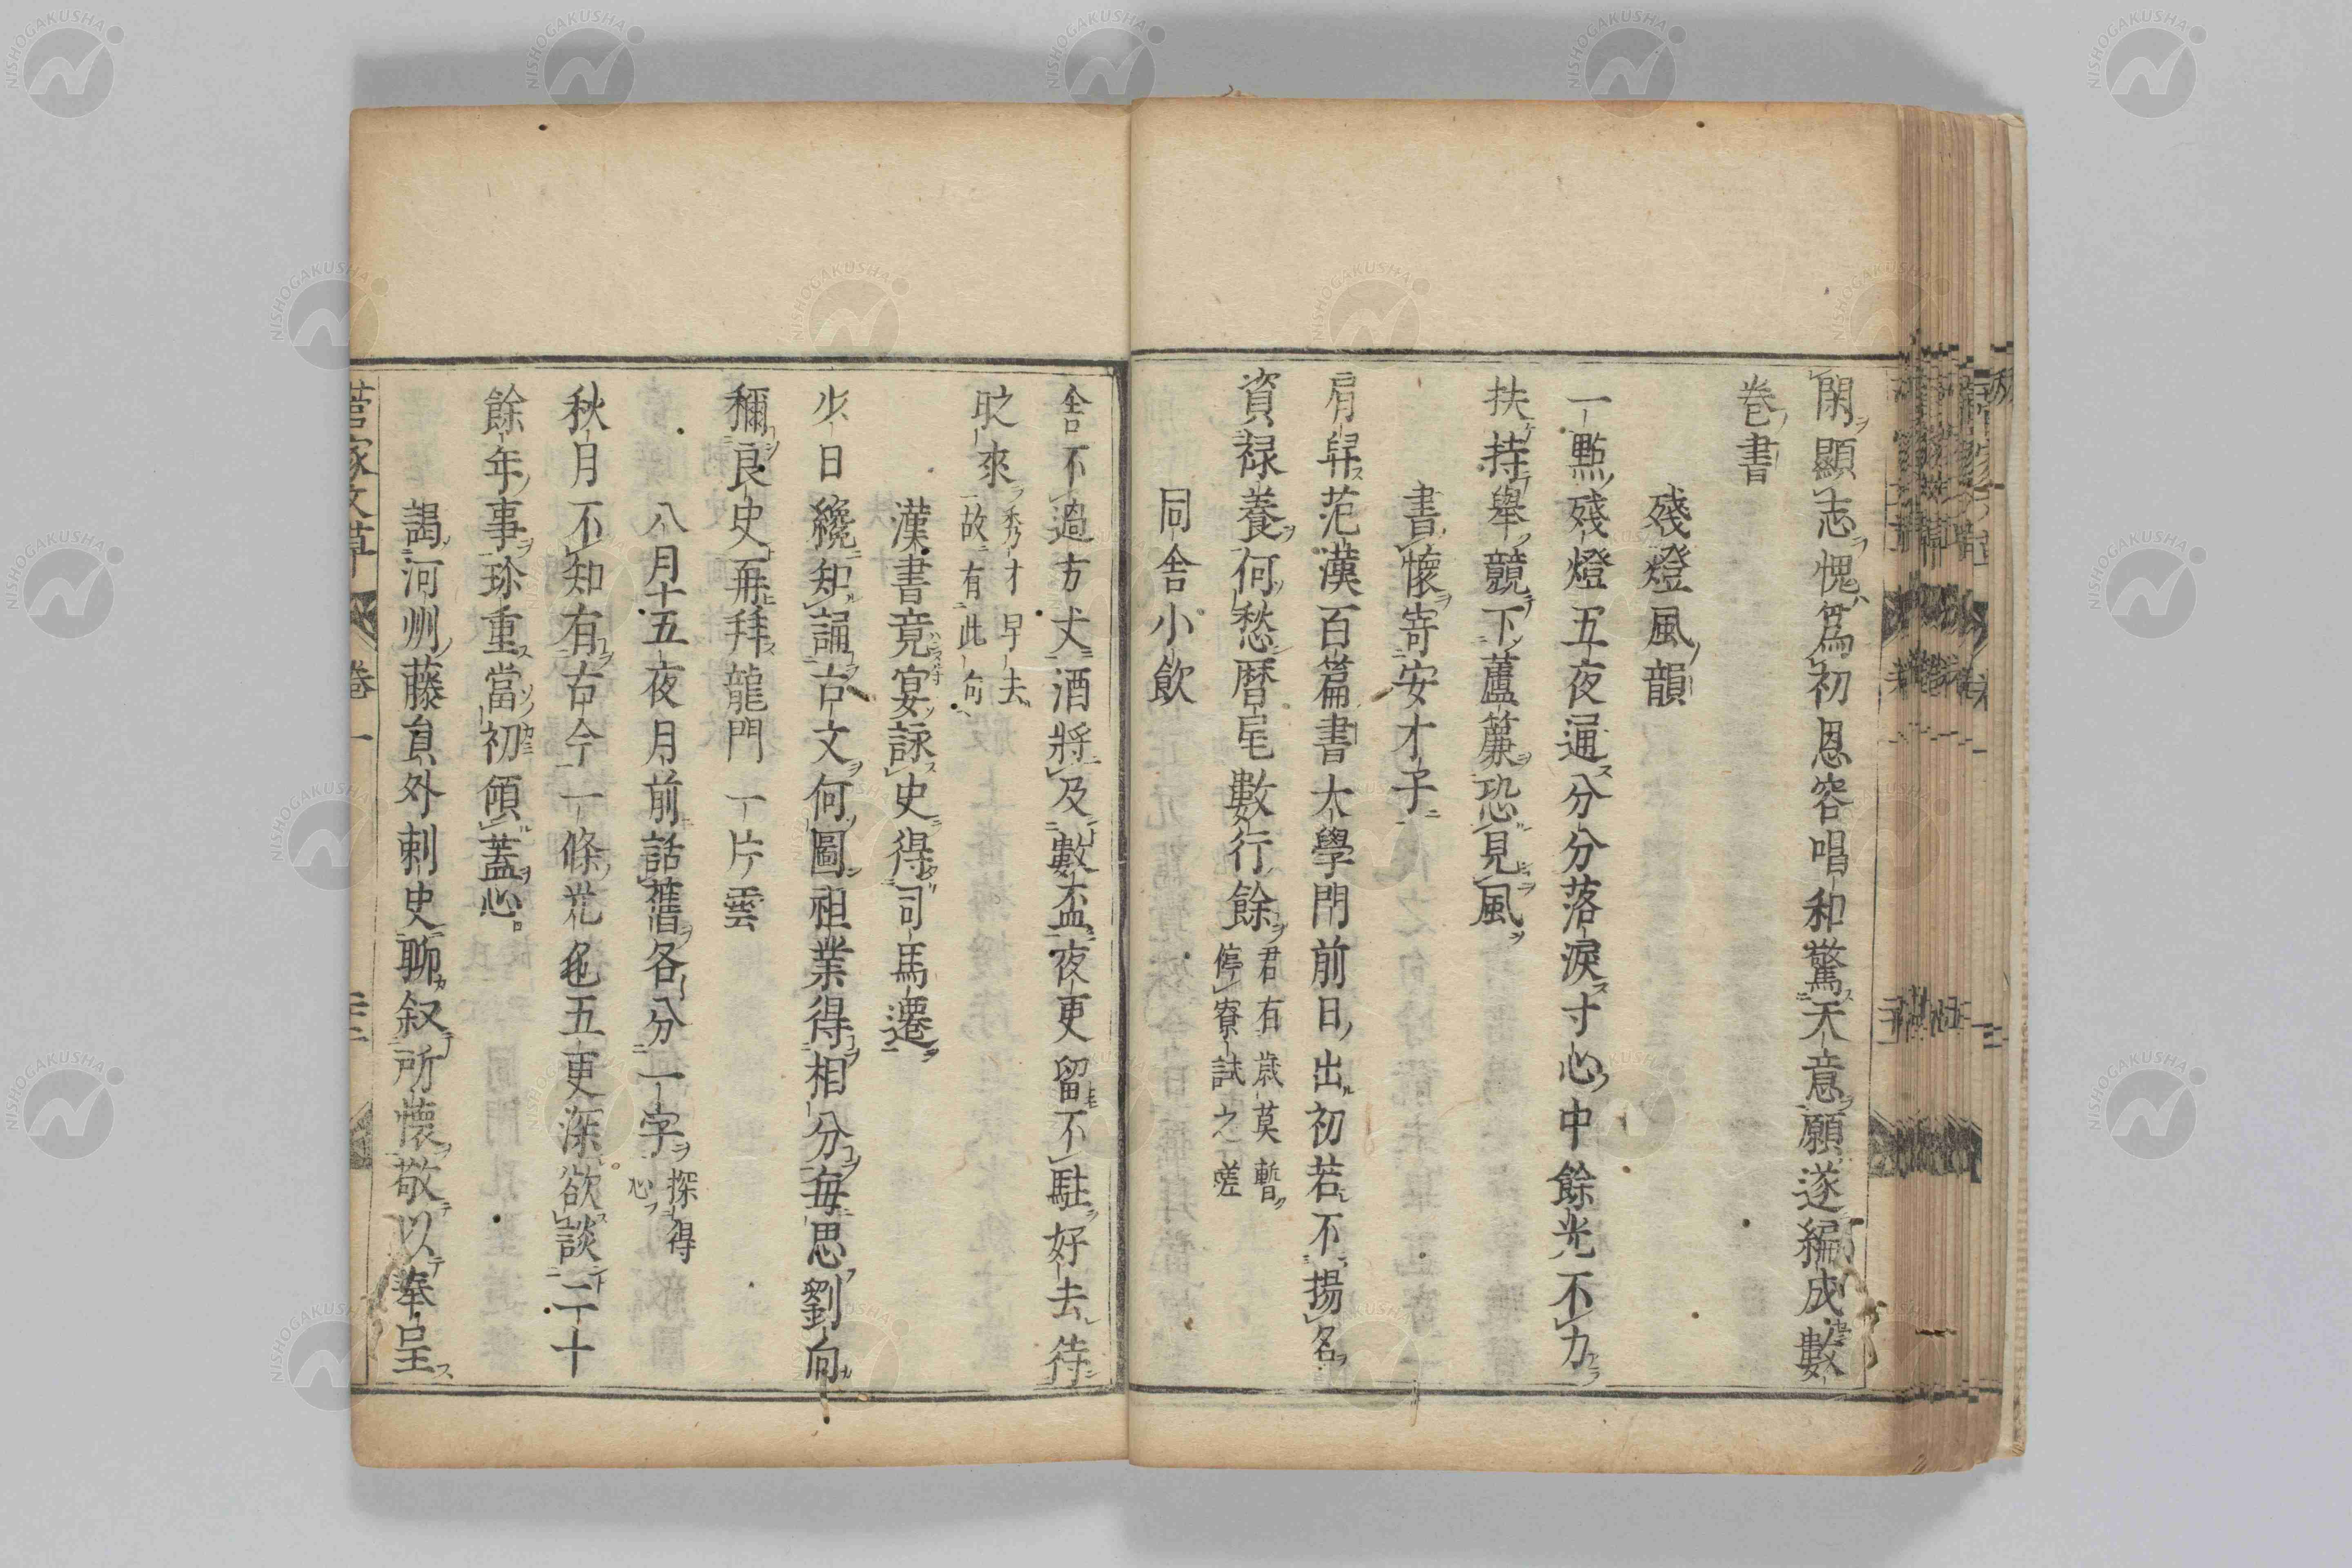 閑顯志愧爲初恩容唱和驚天意願遂編成數
卷書
殘燈風韻
一點殘燈五夜通分分落淚寸心中餘光不力
扶持舉競下蘆簾恐見風
書懷寄安才子
肩舁范漢百篇書太學門前日出初若不揚名
資祿養何愁曆尾數行餘
君有歲莫暫
停寮試之嗟
同舍小飲
舍不過方丈酒將及數盃夜更留不駐好去待
取來
秀才早去
故有此句
漢書竟宴詠史得司馬遷
少日纔知誦古文何圖祖業得相分每思劉向
稱良史再拜龍門一片雲
八月十五夜月前話舊各分一字
探得
心
秋月不知有古今一條光色五更深欲談二十
餘年事珍重當初傾蓋心
謁河州藤員外刺史聊叙所懷敬以奉呈
菅家文草 卷一
NISHOGAKUSHA